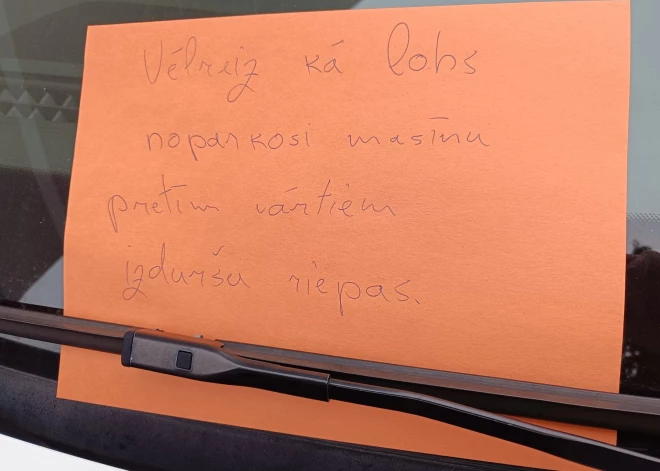 Vēlreiz kā lohs
noparkosi masīnu
pretīm vārtiem
izduršu riepas.